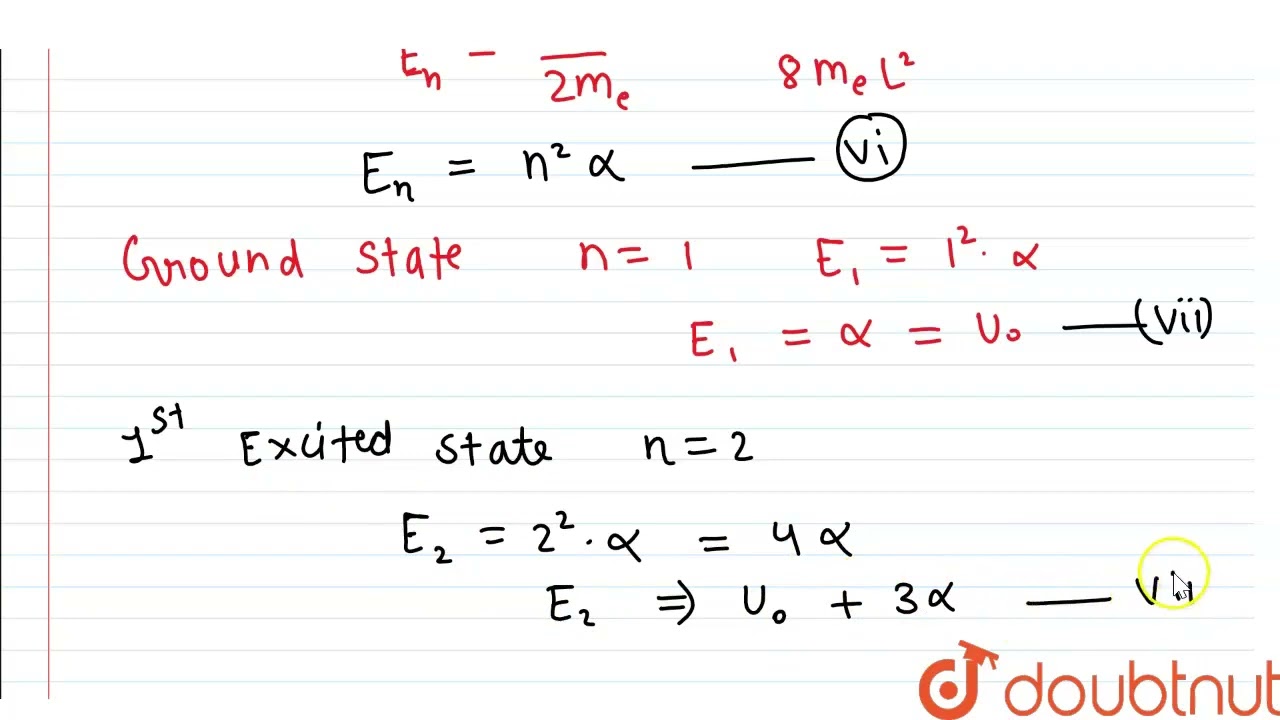 Eₙ = ―/2mₑ 8mₑL²
Eₙ = n² α —— (vi)
Ground state n = 1 E₁ = 1² · α
E₁ = α = U₀ —— (vii)
1st Excited state n = 2
E₂ = 2² · α = 4α
E₂ ⇒ U₀ + 3α ——
doubtnut